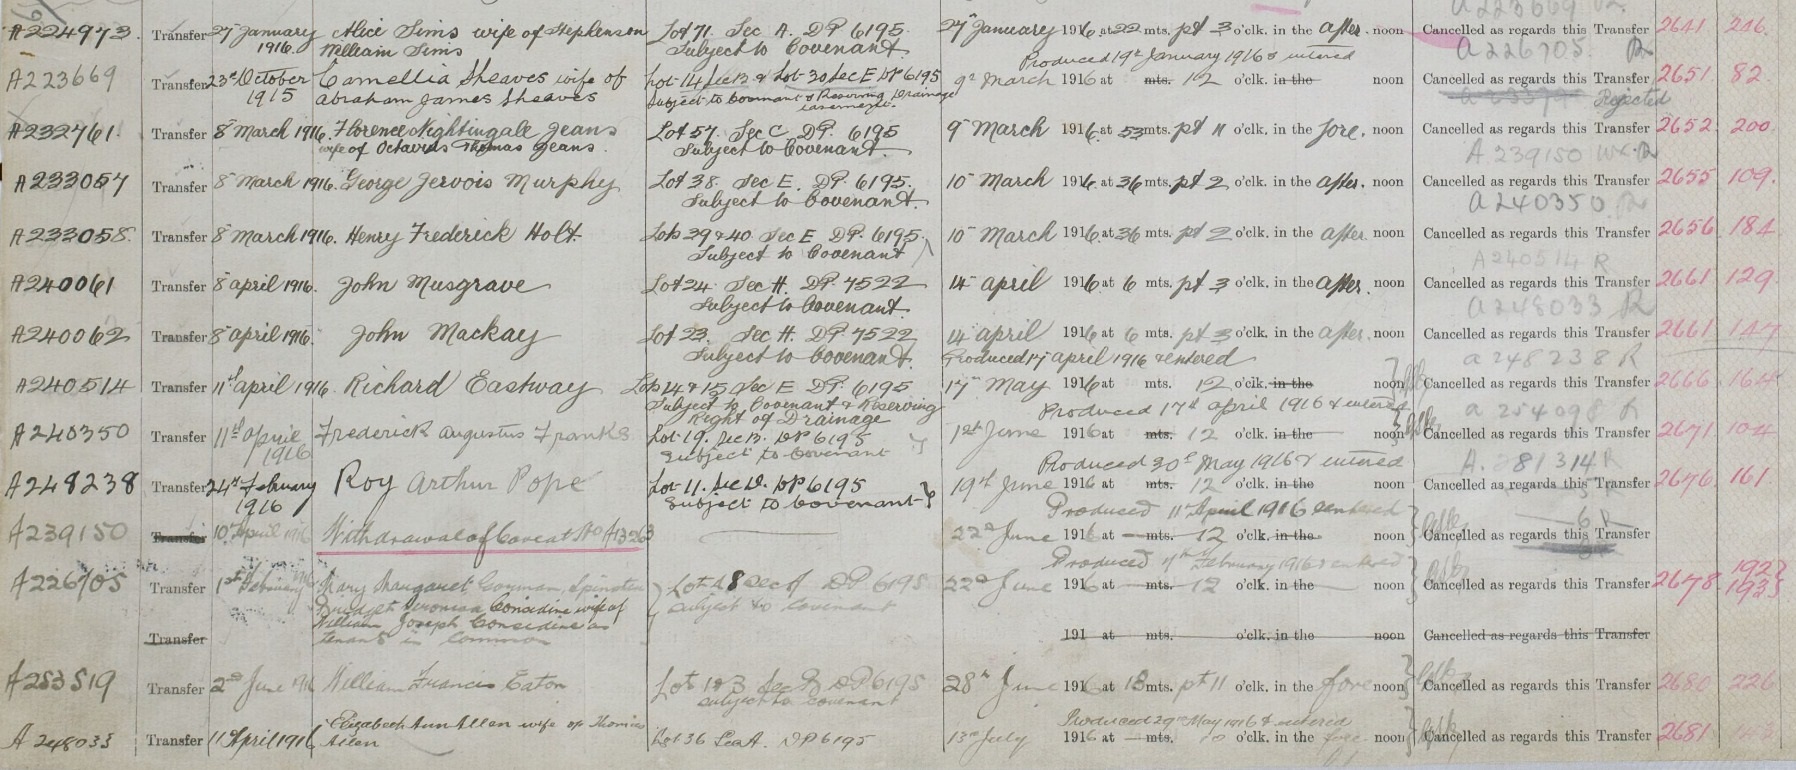 A224973. Transfer 27th January 1916. Alice Sims wife of Stephenson William Sims Lot 71. Sec A. D.P. 6195. Subject to Covenant. 27th January 1916 at 22 mts. pt 3 o'clk. in the after. noon Cancelled as regards this Transfer 2641 246.
A226705. R
Produced 19th January 1916 & entered
A223669 Transfer 23rd October 1915 Camellia Sheaves wife of Abraham James Sheaves Lot 14 Sec B & Lot 30 Sec E DP 6195 Subject to Covenant & Reserving Drainage easement. 9th March 1916 at mts. 12 o'clk. in the noon Cancelled as regards this Transfer 2651. 82.
Rejected
A232761. Transfer 8th March 1916. Florence Nightingale Jeans wife of Octavus Thomas Jeans. Lot 57. Sec C D.P. 6195 Subject to Covenant. 9th March 1916 at 53 mts. pt 11 o'clk. in the fore. noon Cancelled as regards this Transfer 2652. 200.
A239150
A233057 Transfer 8th March 1916. George Jervois Murphy Lot 38. Sec E. D.P. 6195. Subject to Covenant. 10th March 1916 at 36 mts. pt 2 o'clk. in the after. noon Cancelled as regards this Transfer 2655 109.
A240350
A233058. Transfer 8th March 1916. Henry Frederick Holt. Lots 39 & 40 Sec E D.P. 6195. Subject to Covenant 10th March 1916 at 36 mts. pt 2 o'clk. in the after. noon Cancelled as regards this Transfer 2656. 184.
A240514 R
A240061 Transfer 8th April 1916. John Musgrave Lot 24. Sec H. D.P. 7522 Subject to Covenant. 14th April 1916 at 6 mts. pt 3 o'clk. in the after. noon Cancelled as regards this Transfer 2661 129.
A248033 R
A240062 Transfer 8th April 1916. John Mackay Lot 23. Sec H. D.P. 7522 Subject to Covenant. 14th April 1916 at 6 mts. pt 3 o'clk. in the after. noon Cancelled as regards this Transfer 2661 147
Produced 17th April 1916 & entered
A248238 R
A240514 Transfer 11th April 1916. Richard Eastway Lots 14 & 15 Sec E D.P. 6195 Subject to Covenant & Reserving Right of Drainage 17th May 1916 at mts. 12 o'clk. in the noon Cancelled as regards this Transfer 2666 164
Produced 17th April 1916 & entered
A254098 R
A240350 Transfer 11th April 1916 Frederick Augustus Franks Lot 19. Sec B. DP 6195 Subject to Covenant 1st June 1916 at mts. 12 o'clk. in the noon Cancelled as regards this Transfer 2671 104
Produced 30th May 1916 & entered
A.281314 R
A248238 Transfer 24th February 1916 Roy Arthur Pope Lot 11. Sec D. DP 6195 Subject to Covenant 19th June 1916 at mts. 12 o'clk. in the noon Cancelled as regards this Transfer 2676. 161.
Produced 11th April 1916 & entered
6 R
A239150 Transfer 10th April 1916 Withdrawal of Caveat No A13263 22nd June 1916 at mts. 12 o'clk. in the noon Cancelled as regards this Transfer
Produced February 1916 & entered
A226705 Transfer 1st February Mary Margaret Gorman, Spinster Bridget Veronica Considine wife of William Joseph Considine as tenants in Common Lot 8 Sec DP 6195 Subject to Covenant 22nd June 1916 at mts. 12 o'clk. in the noon Cancelled as regards this Transfer 2678 192 193
Transfer 191 at mts. o'clk. in the noon Cancelled as regards this Transfer
A253519 Transfer 2nd June 1916 William Francis Eaton Sec B DP 6195 Subject to Covenant 28th June 1916 at 18 mts. pt 11 o'clk. in the fore noon Cancelled as regards this Transfer 2680 226
Produced 29th May 1916 & entered
A248033 Transfer 11 April 1916 Elizabeth Ann Allen wife of Thomas Allen Lot 36 Sec A. DP 6195 13th July 1916 at mts. 10 o'clk. in the fore noon Cancelled as regards this Transfer 2681